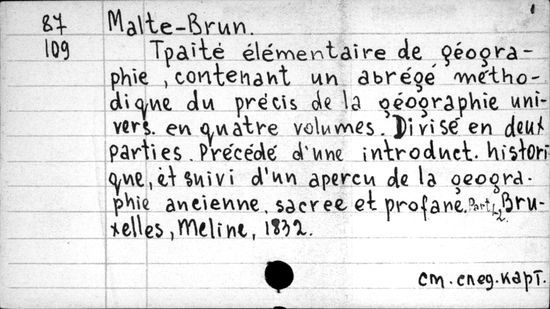 87 Malte-Brun.
109 Traité élémentaire de géogra-
phie, contenant un abrégé métho-
dique du précis de la géographie uni-
vers. en quatre volumes. Divisé en deux
parties. Précédé d'une introduct. histori
que, et suivi d'un apercu de la geogra-
phie ancienne, sacree et profane. Part 1-2. Bru-
xelles, Meline, 1832.
см. след. карт.